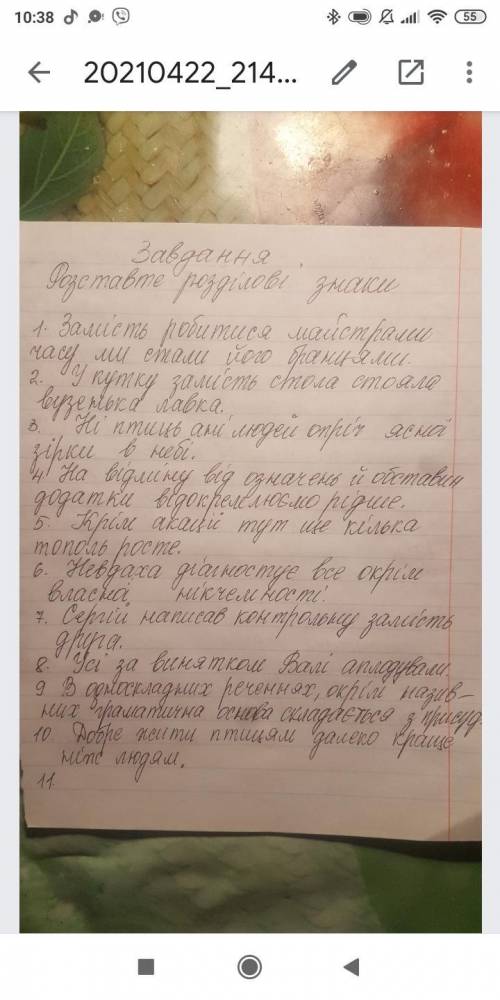 10:38
55
20210422_214...
Завдання
Розставте розділові знаки
1. Замість робитися майстрами
часу ми стали його бранцями.
2. У кутку замість стола стояла
вузенька лавка.
3. Ні птиць ані людей опріч ясної
зірки в небі.
4. На відміну від означень й обставин
додатки відокремлюємо рідше.
5. Крім акацій тут ще кілька
тополь росте.
6. Невдаха діагностує все окрім
власної нікчемності.
7. Сергій написав контрольну замість
друга.
8. Усі за винятком Валі аплодували.
9 В односкладних реченнях, окрім назив-
них граматична основа складається з присуд.
10. Добре жити птицям далеко краще
ніж людям.
11.